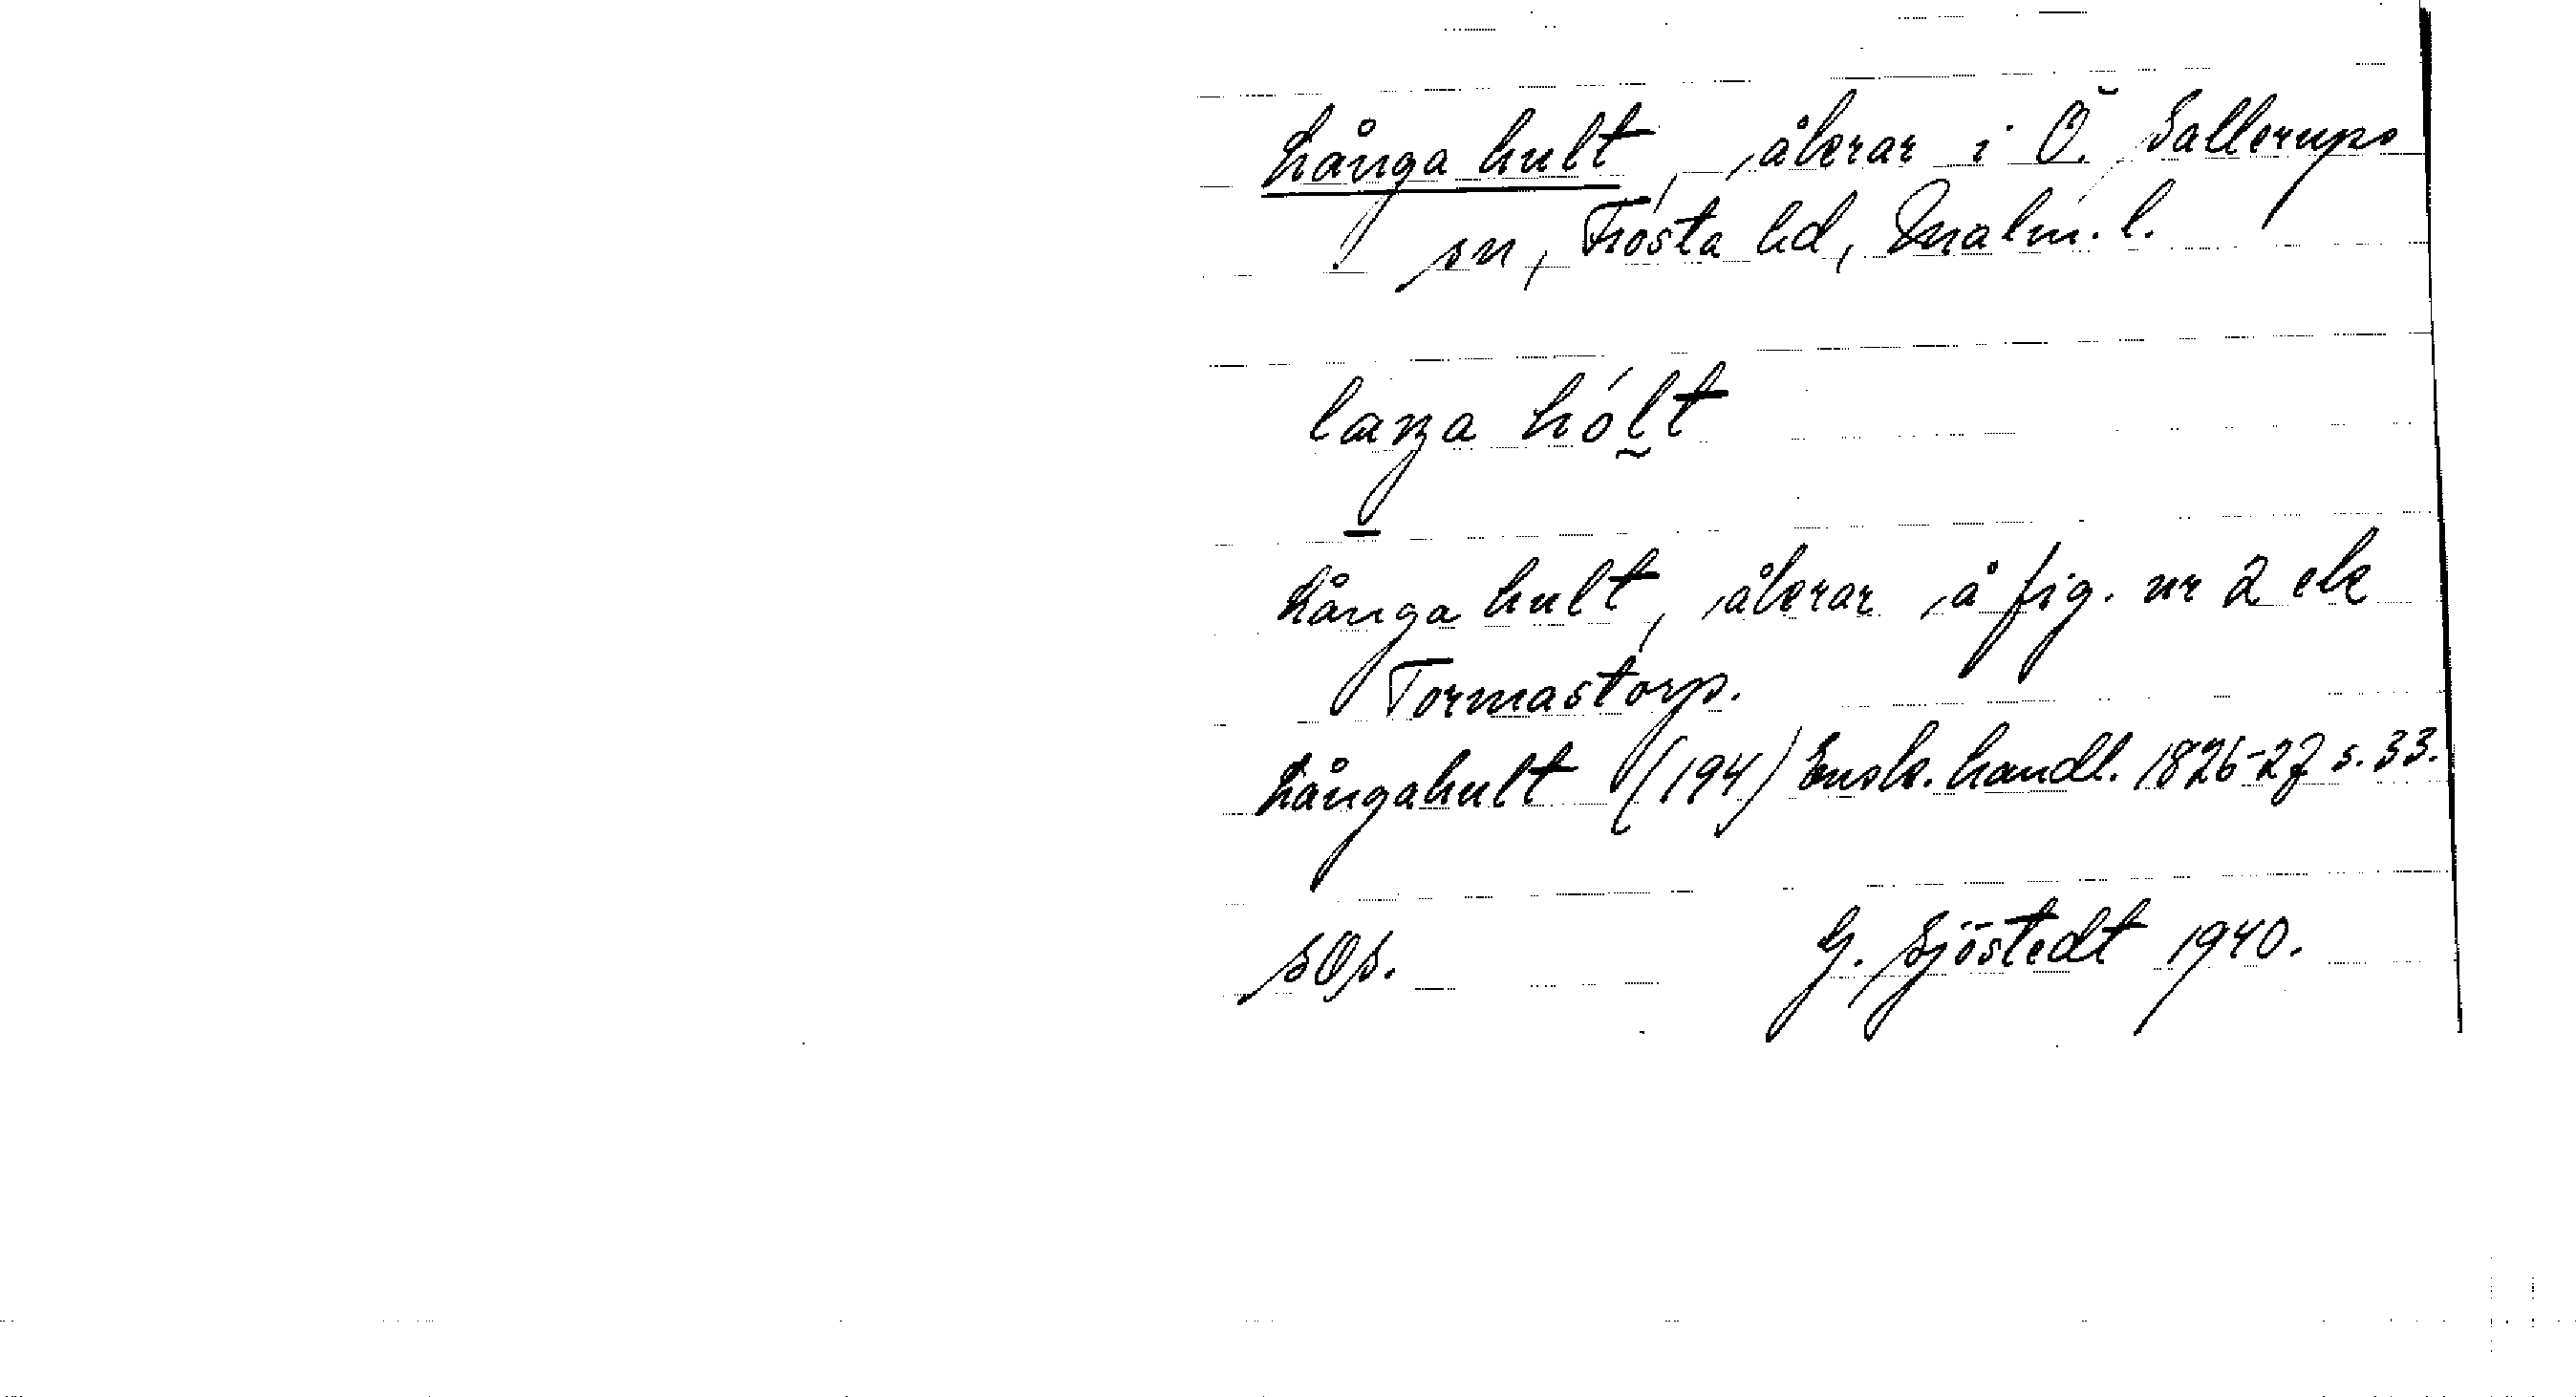 Långa hult, åkrar i Ö. Sallerups
sn, Frosta hd, Malm. l.
laŋa hólt
Långa hult, åkrar å fig. nr 2 ek
Tormastorp.
Långahult (194) Ensk. handl. 1826-27 s. 33.
sOs. G. Sjöstedt 1940.